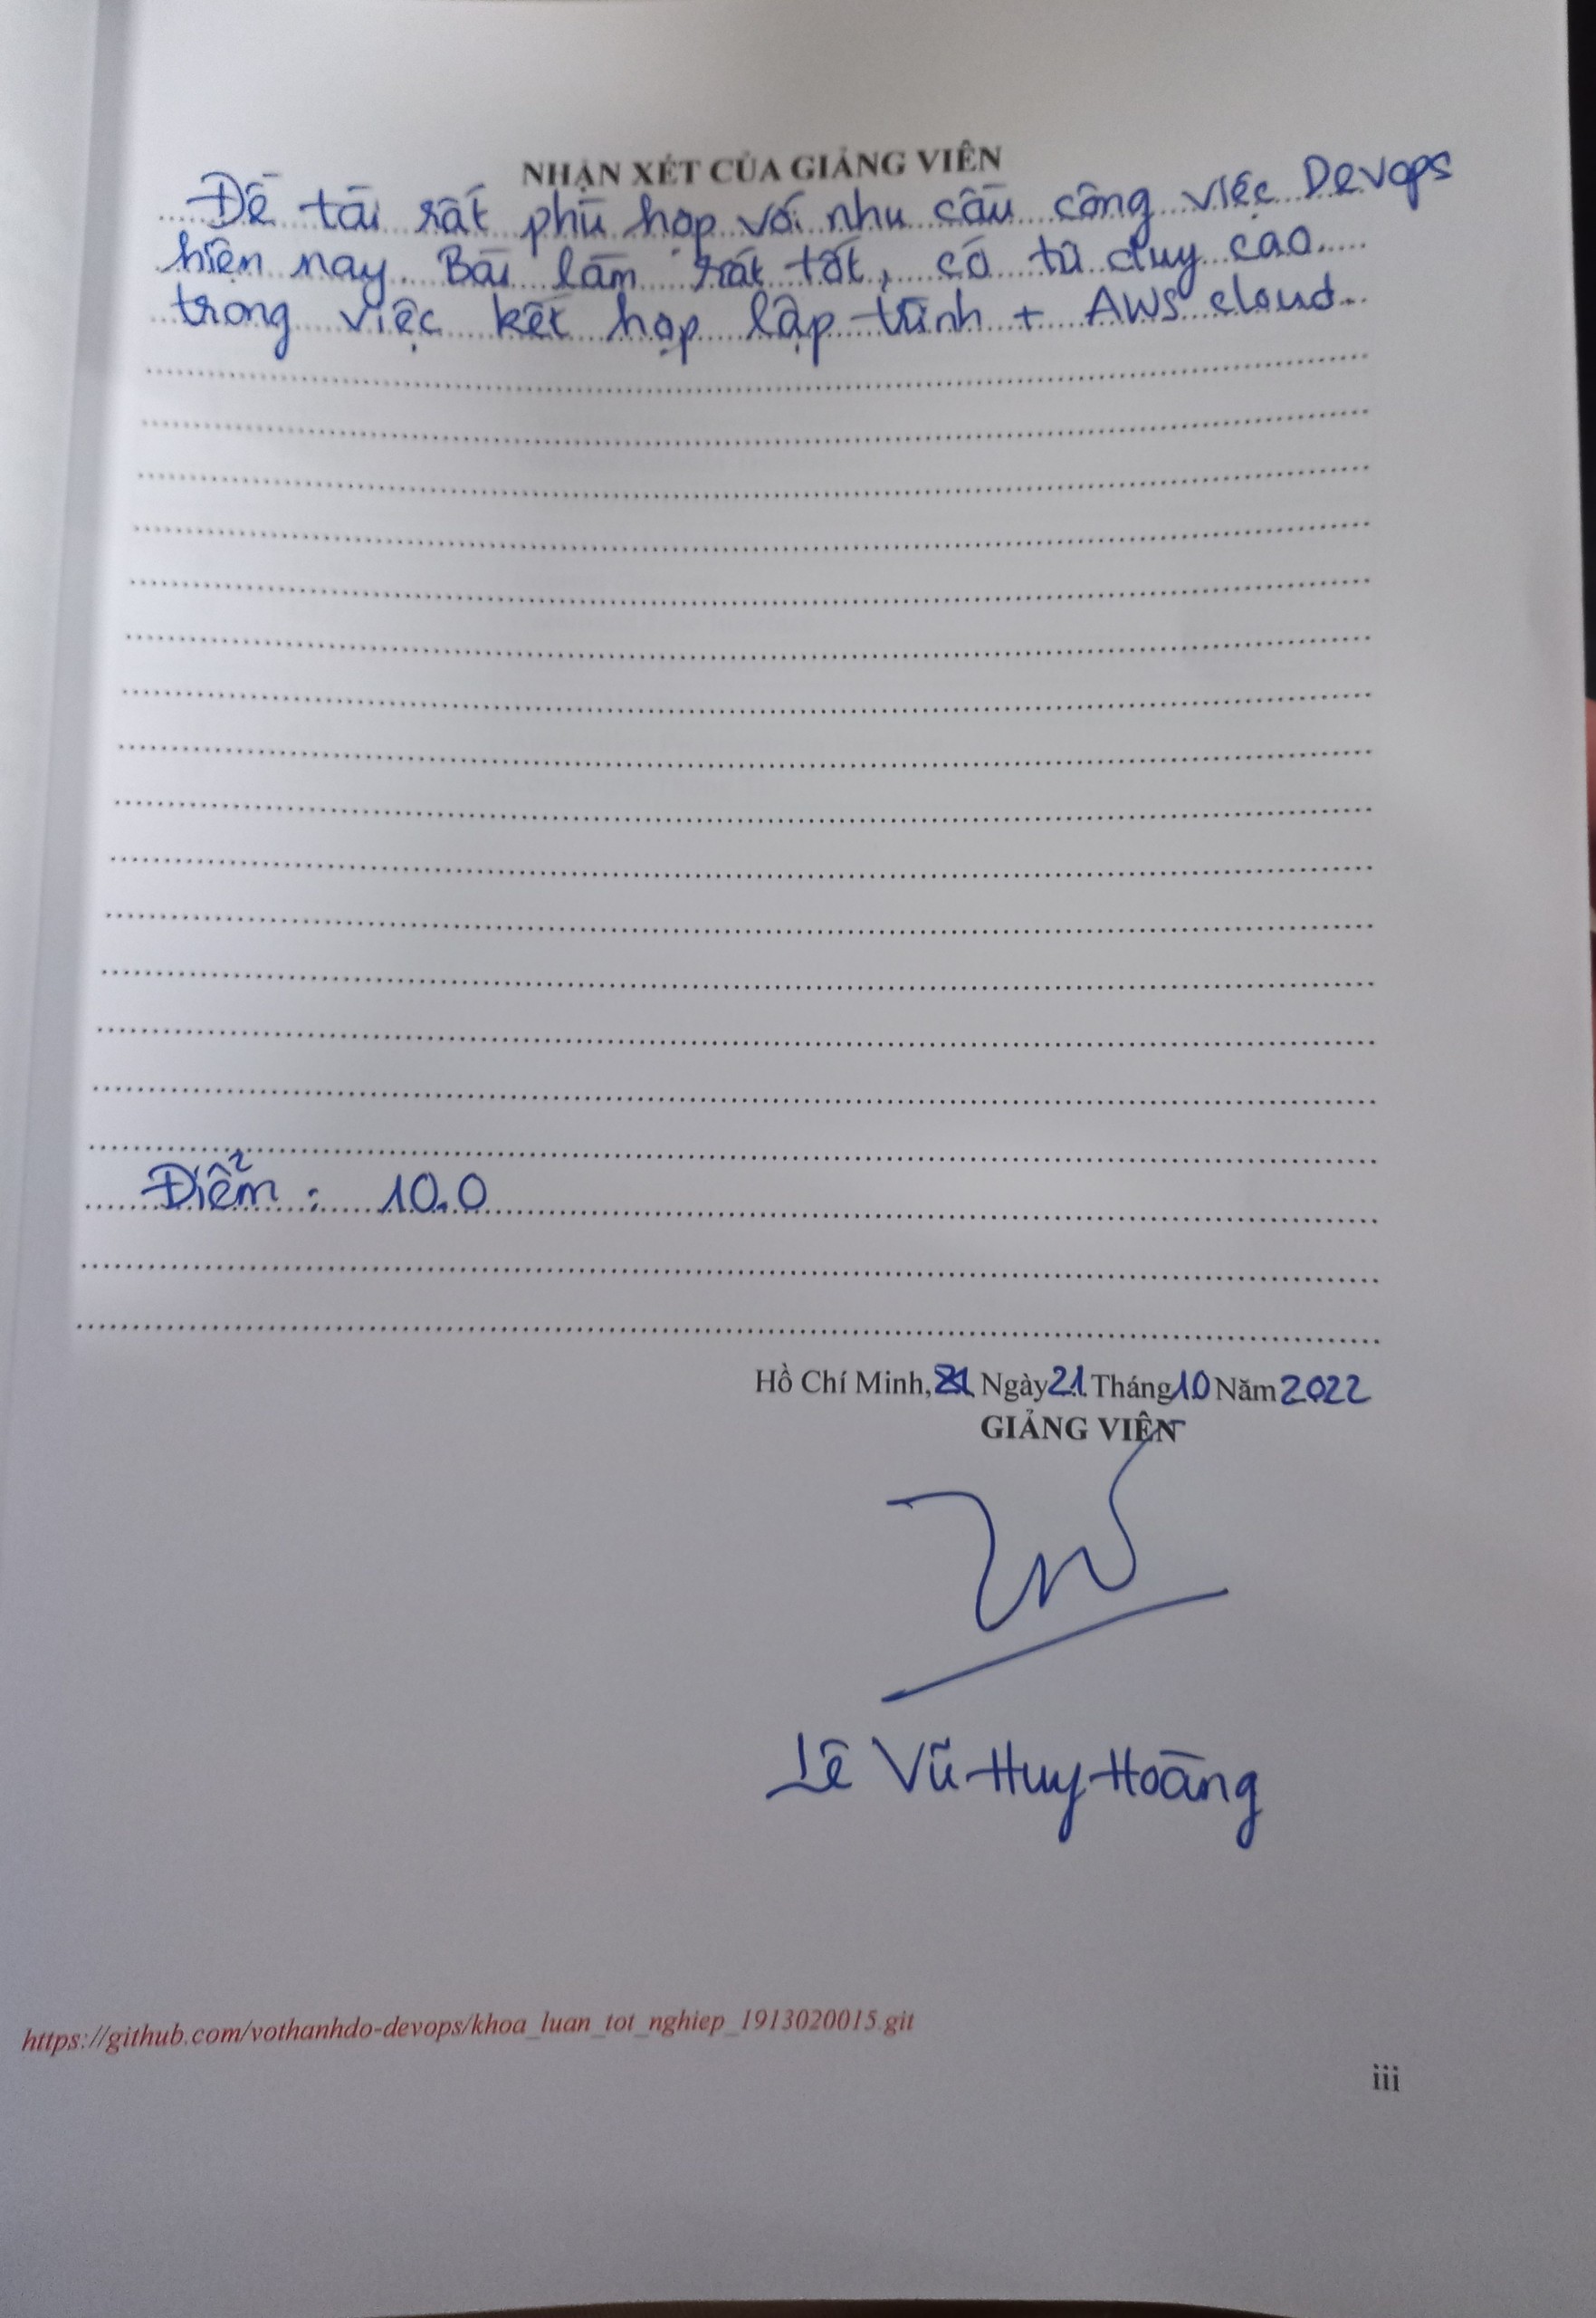 NHẬN XÉT CỦA GIẢNG VIÊN
Đề tài rất phù hợp với nhu cầu công việc Devops
hiện nay. Bài làm rất tốt, có tư duy cao
trong việc kết hợp lập trình + AWS cloud.
Điểm : 10.0
Hồ Chí Minh, 21 Ngày 21 Tháng 10 Năm 2022
GIẢNG VIÊN
Lê Vũ Huy Hoàng
https://github.com/vothanhdo-devops/khoa_luan_tot_nghiep_1913020015.git
iii